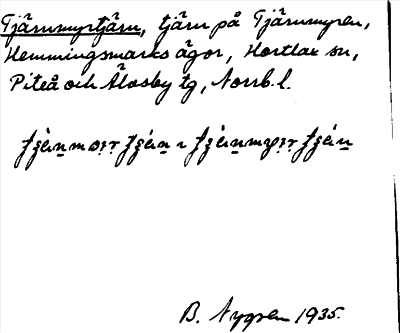 Tjärnmyrtjärn, tjärn på Tjärnmyren,
Hemmingsmarks ägor, Hortlax sn,
Piteå och Älvsby tg, Norrb. l.
B. Nygren 1935.